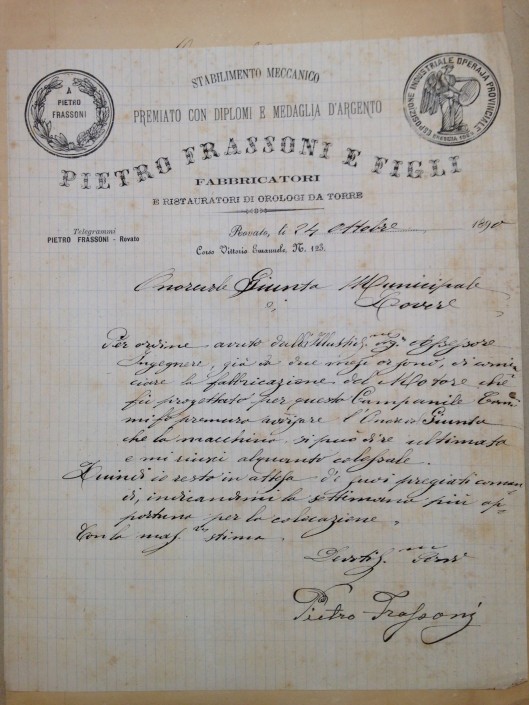 STABILIMENTO MECCANICO
PREMIATO CON DIPLOMI E MEDAGLIA D'ARGENTO
PIETRO FRASSONI E FIGLI
FABBRICATORI
E RISTAURATORI DI OROLOGI DA TORRE
A
PIETRO
FRASSONI
ESPOSIZIONE INDUSTRIALE OPERAJA PROVINCIALE
BRESCIA
Telegrammi
PIETRO FRASSONI - Rovato
Rovato, li 24 Ottobre 1890
Corso Vittorio Emanuele, N. 125.
Giunta Municipale
Lovere
Per ordine avuto dall'Illustris.mo Sig. Assessore
Ingegnere, già da due mesi or sono, di comin
ciare la fabbricazione del che
fu progettato per questo Campanile
premura avvisare l' Giunta
che la macchina si può dire ultimata
e mi riuscì alquanto colossale.
Quindi io resto in attesa de' suoi pregiati coman
di, indicandomi la settimana più op
portuna per la colocazione.
Con la mas.ma stima.
Pietro Frassoni